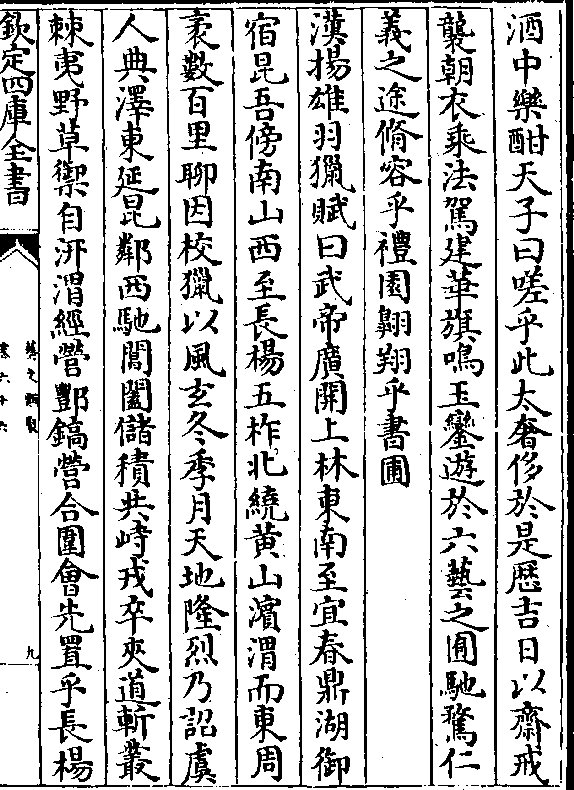 酒中樂酣天子曰嗟乎此太奢侈於是歴吉日以齋戒
襲朝衣乘法駕建華旗鳴玉鑾遊於六藝之囿馳騖仁
義之途脩容乎禮園翺翔乎書圃
漢揚雄羽獵賦曰武帝廣開上林東南至宜春鼎湖御
宿昆吾傍南山西至長楊五柞北繞黄山濵渭而東周
袤數百里聊因校獵以風玄冬季月天地隆烈乃詔虞
人典澤東延昆鄰西馳閶闔儲積共峙戎卒夾道斬叢
棘夷野草禦自汧渭經營酆鎬營合圍會先置乎長楊
欽定四庫全書
藝文類聚
卷六十六
九